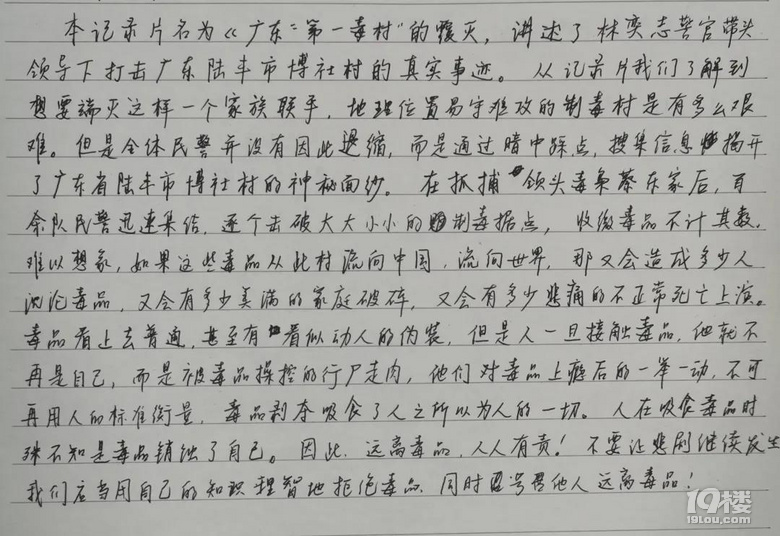 本记录片名为《广东"第一毒村"的覆灭，讲述了林奕志警官带头
领导下打击广东陆丰市博社村的真实事迹。从记录片我们了解到
想要端灭这样一个家族联手，地理位置易守难攻的制毒村是有多么艰
难。但是全体民警并没有因此退缩，而是通过暗中踩点，搜集信息揭开
了广东省陆丰市博社村的神秘面纱。在抓捕领头毒枭蔡东家后，百
余队民警迅速集结，逐个击破大大小小的制毒据点，收缴毒品不计其数。
难以想象，如果这些毒品从此村流向中国，流向世界，那又会造成多少人
沉沦毒品，又会有多少美满的家庭破碎，又会有多少悲痛的不正常死亡上演。
毒品看上去普通，甚至有看似动人的伪装，但是人一旦接触毒品，他就不
再是自己，而是被毒品操控的行尸走肉，他们对毒品上瘾后的一举一动，不可
再用人的标准衡量，毒品剥夺吸食了人之所以为人的一切。人在吸食毒品时
殊不知是毒品销蚀了自己。因此，远离毒品，人人有责！不要让悲剧继续发生
我们应当用自己的知识理智地拒绝毒品 同时号召他人远离毒品！
19楼
19lou.com